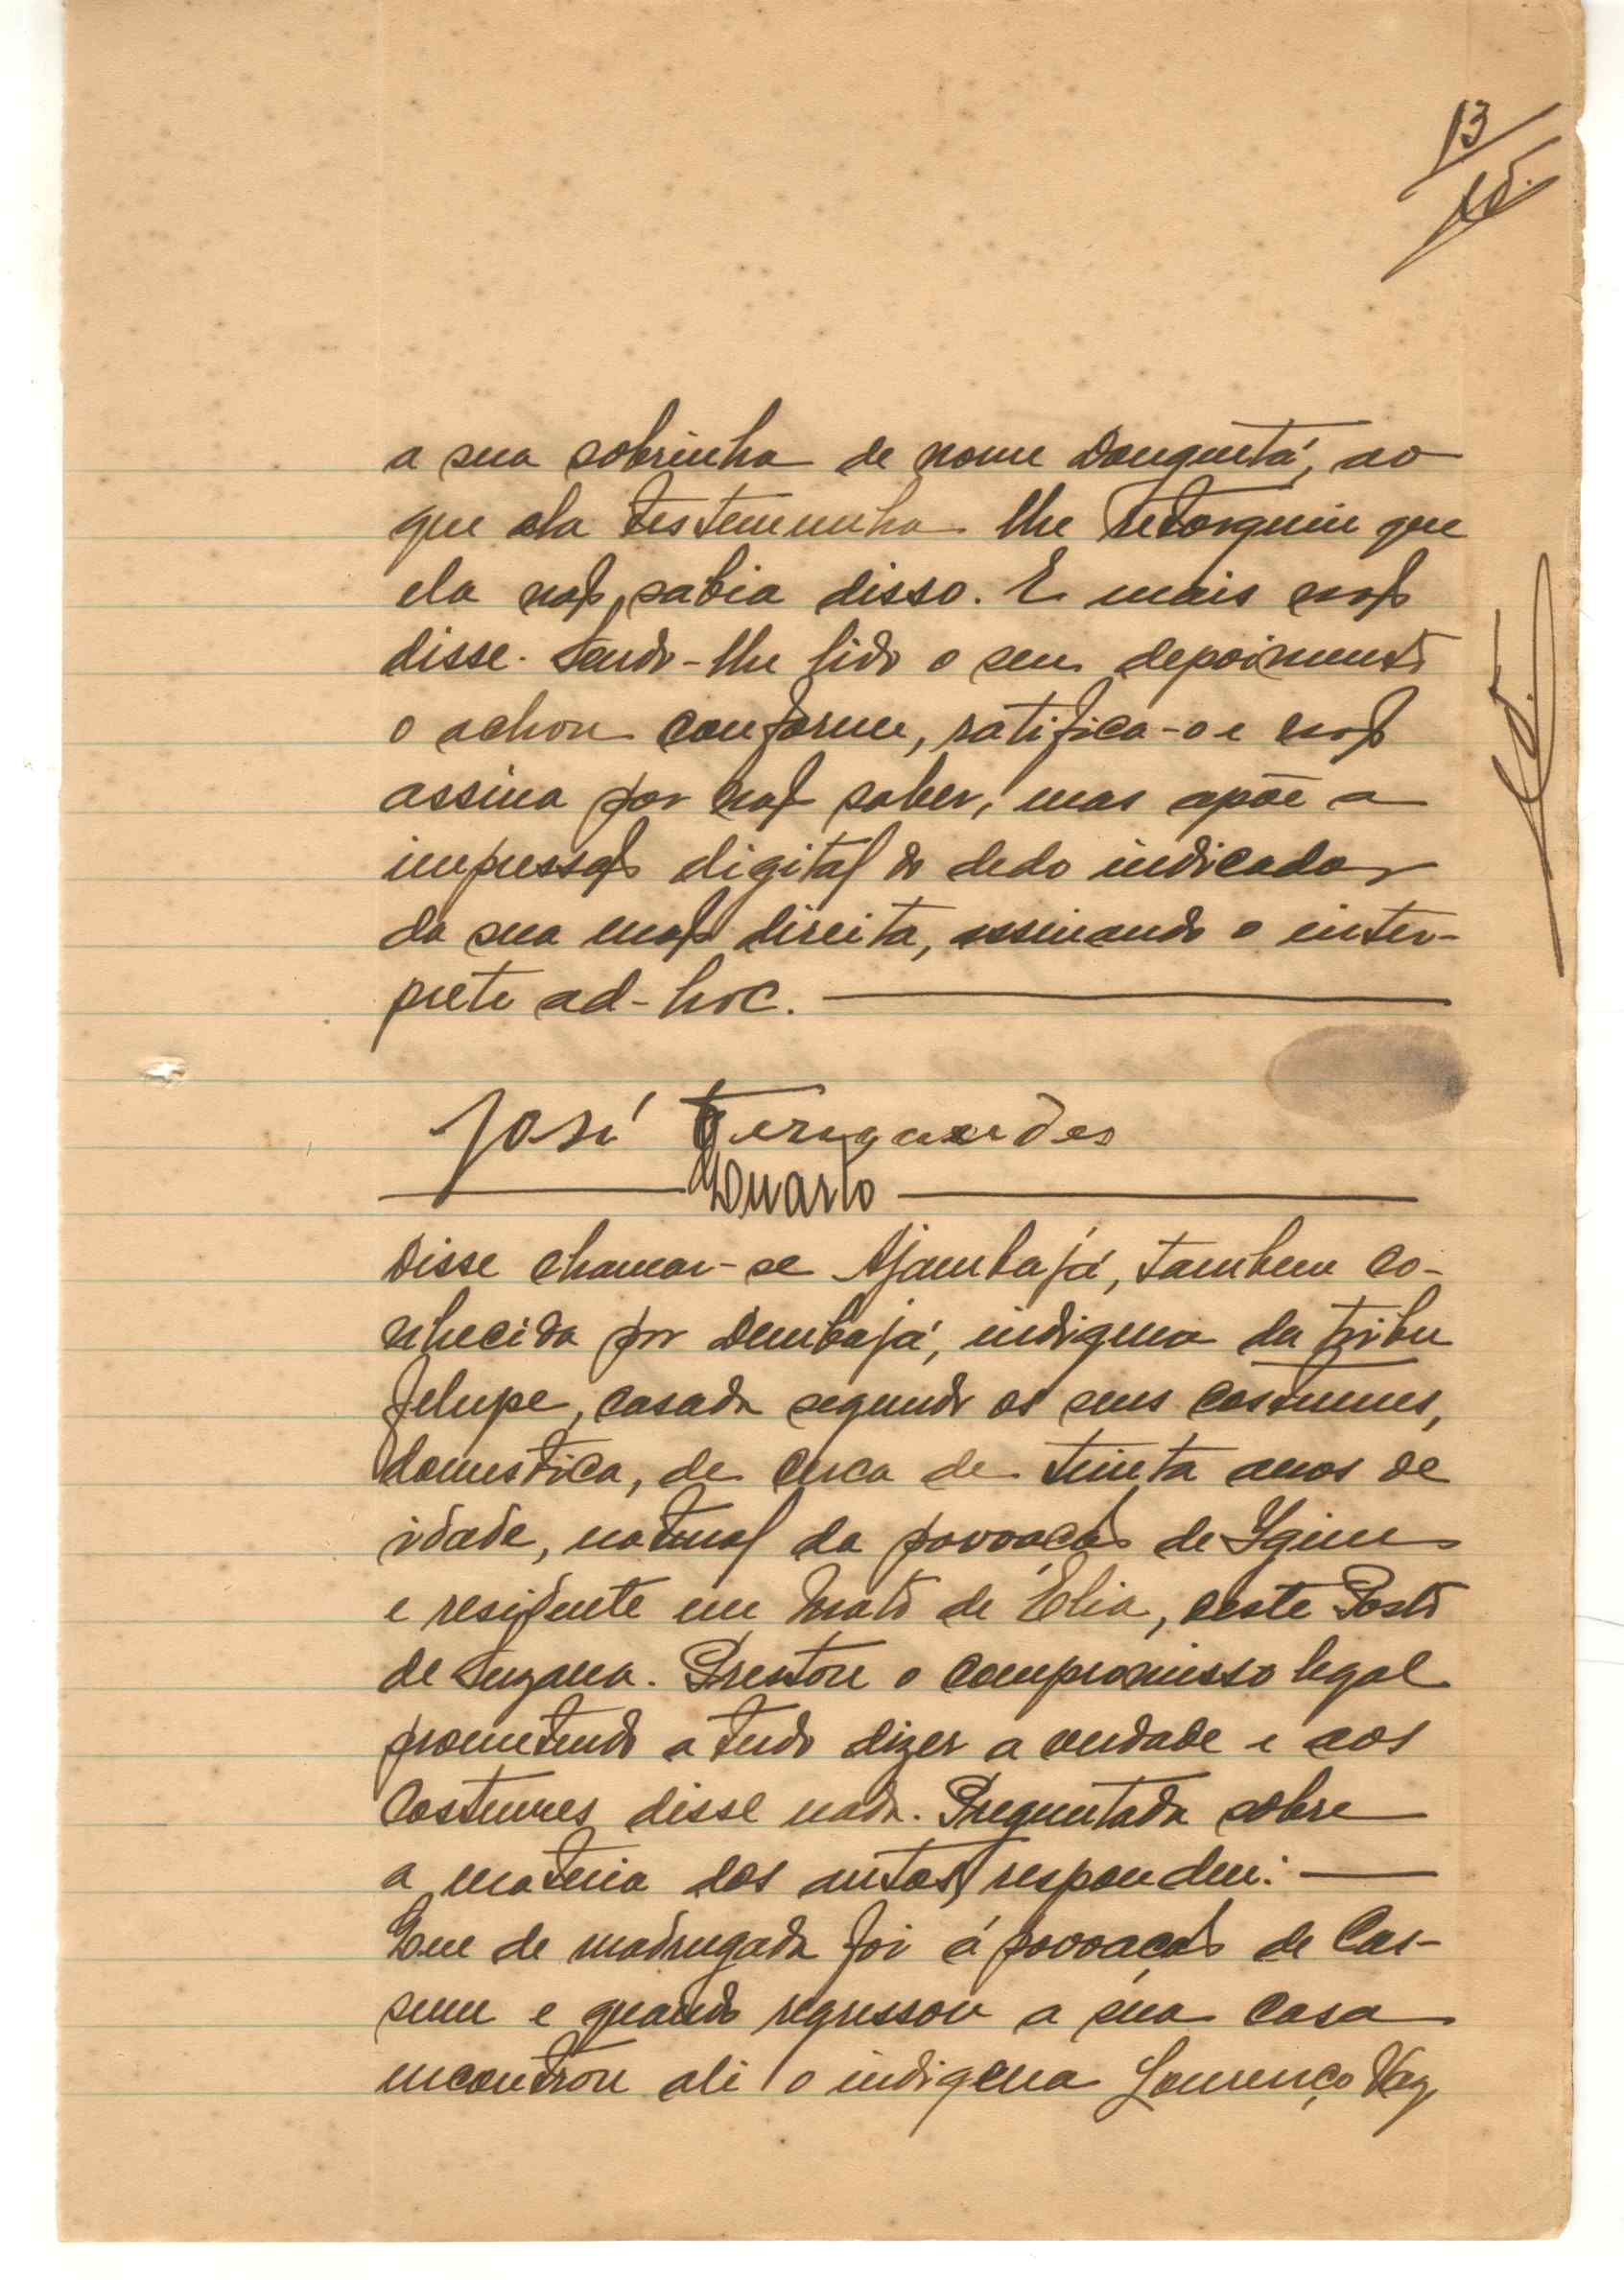 13
a sua sobrinha de nome Donguetá, ao
que ela testemunha lhe retorquiu que
ela não sabia disso. E mais não
disse. Sendo-lhe lido o seu depoimento
o achou conforme, ratifica-o e não
assina por não saber, mas apõe a
impressão digital do dedo indicador
da sua mão direita, assinando o inter-
prete ad-hoc.
José
Quarto
Disse chamar-se Ajambajá, tambem co-
nhecida por Dembajá, indigena da tribu
felupe, casada segundo os seus costumes,
domestica, de cerca de trinta anos de
idade, natural da povoação de
e residente em Mato de Elia, deste Posto
de Suzana. Prestou o compromisso legal
prometendo a tudo dizer a verdade e aos
costumes disse nada. Preguntada sobre
a materia dos autos, respondeu:
Que de madrugada foi á povoação de Cas-
sum e quando regressou a sua casa
encontrou ali o indigena Lourenço Vaz